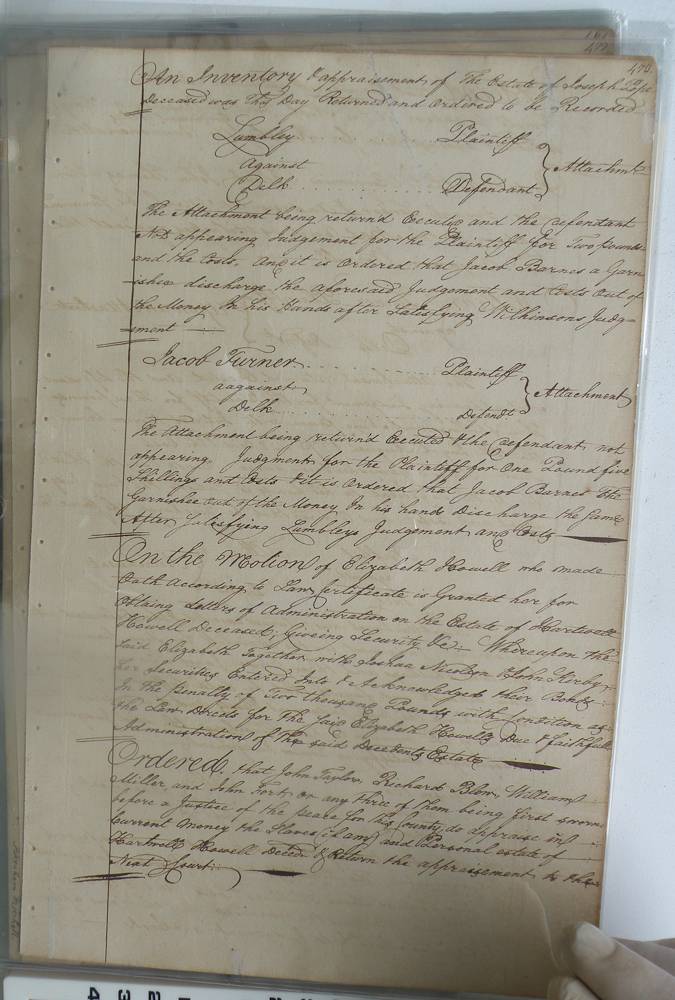 473
An Inventory & appraisement of The Estate of Joseph Pope
Deceased was This Day Returned and Ordered to be Recorded
Lumbley Plaintiff
against } Attachmt
Delk Defendant
The Attachment being return'd Executed and the Defendant
Not appearing Judgement for the Plaintiff for Two pounds
and the Costs. And it is Ordered that Jacob Barnes a Garn
ishee discharge the aforesaid Judgement and Costs out of
the Money In his Hands after Satisfying Wilkinsons Judg=
=ment
Jacob Turner Plaintiff
aagainst } Attachment
Delk Defendt
The Attachment being return'd Executed & the Defendant not
appearing Judgment for the Plaintiff for One Pound five
Shillings and Costs & it is Ordered that Jacob Barnes The
Garnishee out of the Money In his hands Discharge the Same
After Satisfying Lumbleys Judgement and Costs
On the Motion of Elizabeth Howell who made
Oath According to Law Certificate is Granted her for
Obtaing Letters of Administration on the Estate of Hartwell
Howell Deceased; Giveing Security &c. Whereupon the
Said Elizabeth Together with Joshua Nicolson & John Kirby
her Securities Entered Into & Acknowledged their Bond
In the penalty of Two thousand Pounds with Condition as
the Law Directs for The said Elizabeth Howells Due & faithfull
Administration of the said Decedents Estate
Ordered, that John Taylor, Richard Blow, William
Miller and John Fort or any three of them being first sworn
before a Justice of the peace for this County do appraise in
Current Money the Slaves (if any) and Personal estate of
Hartwell Howell Deced & Return the appraisement to the
Next Court